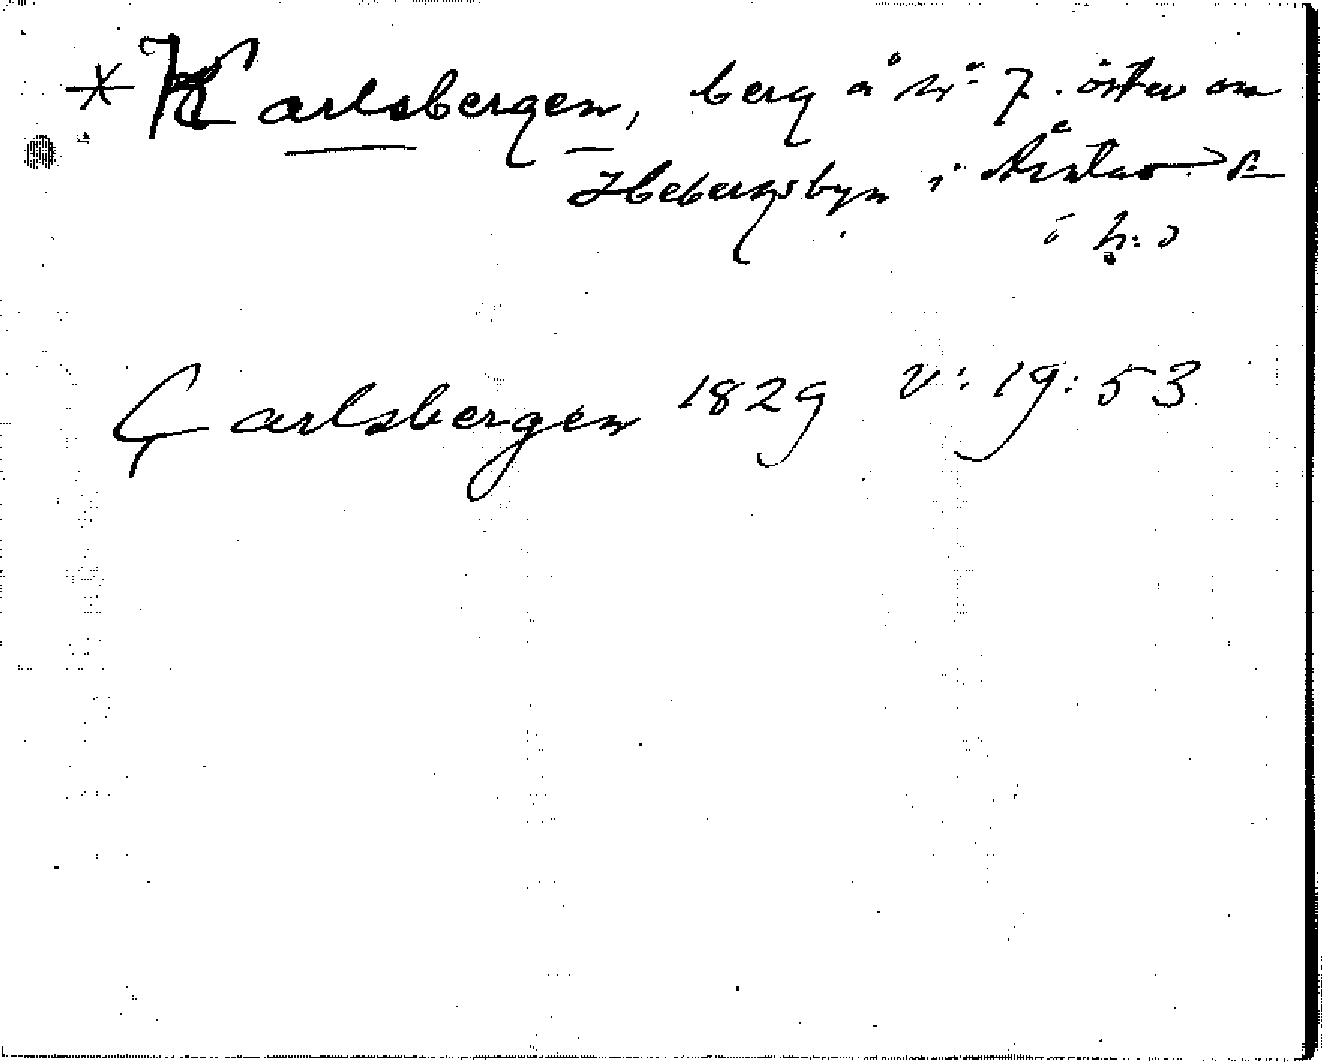 * Karlsbergen, berg å nr 7. öster om
Hebergsbyn i
i h. o
Carlsbergen 1829 V: 19: 53